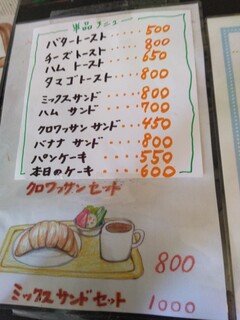 単品メニュー
バタートースト・・・・500
チーズトースト・・・・800
ハム トースト・・・・650
タマゴトースト・・・・800
ミックスサンド・・・・800
ハム サンド・・・・700
クロワッサン サンド・・・・450
バナナ サンド・・・・800
パンケーキ・・・・550
本日のケーキ・・・・600
クロワッサンセット
800
ミックスサンドセット 1000